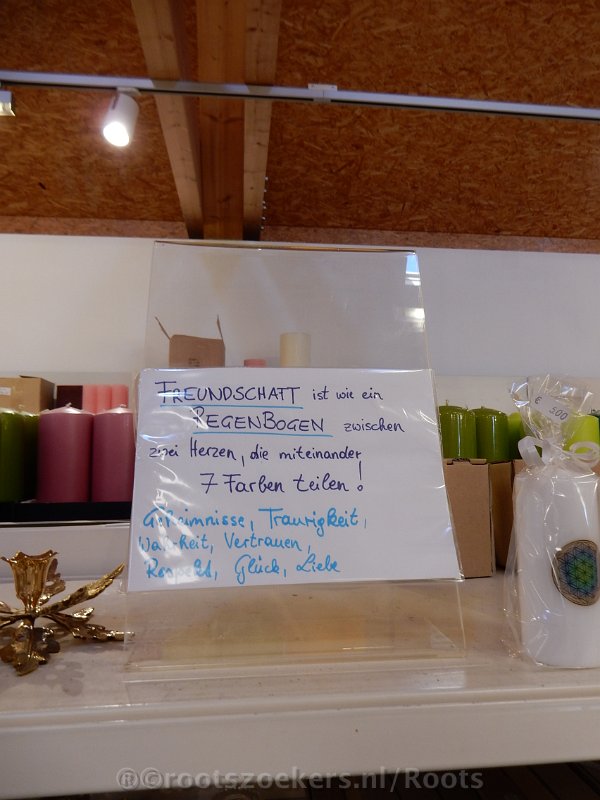 FREUNDSCHATT ist wie ein
REGENBOGEN zwischen
zwei Herzen, die miteinander
7 Farben teilen!
Geheimnisse, Traurigkeit,
Wahrheit, Vertrauen,
Respekt, Glück, Liebe
€ 500
©Grootszoekers.nl/Roots